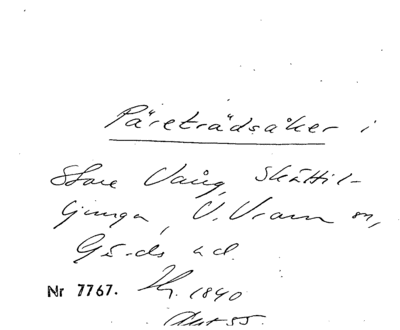 Päreträdsåker i
Store Vång, Skättil-
ljunga, V. Vram sn,
Gärds hd.
Nr 7767. Hy. 1840
Akt 55.